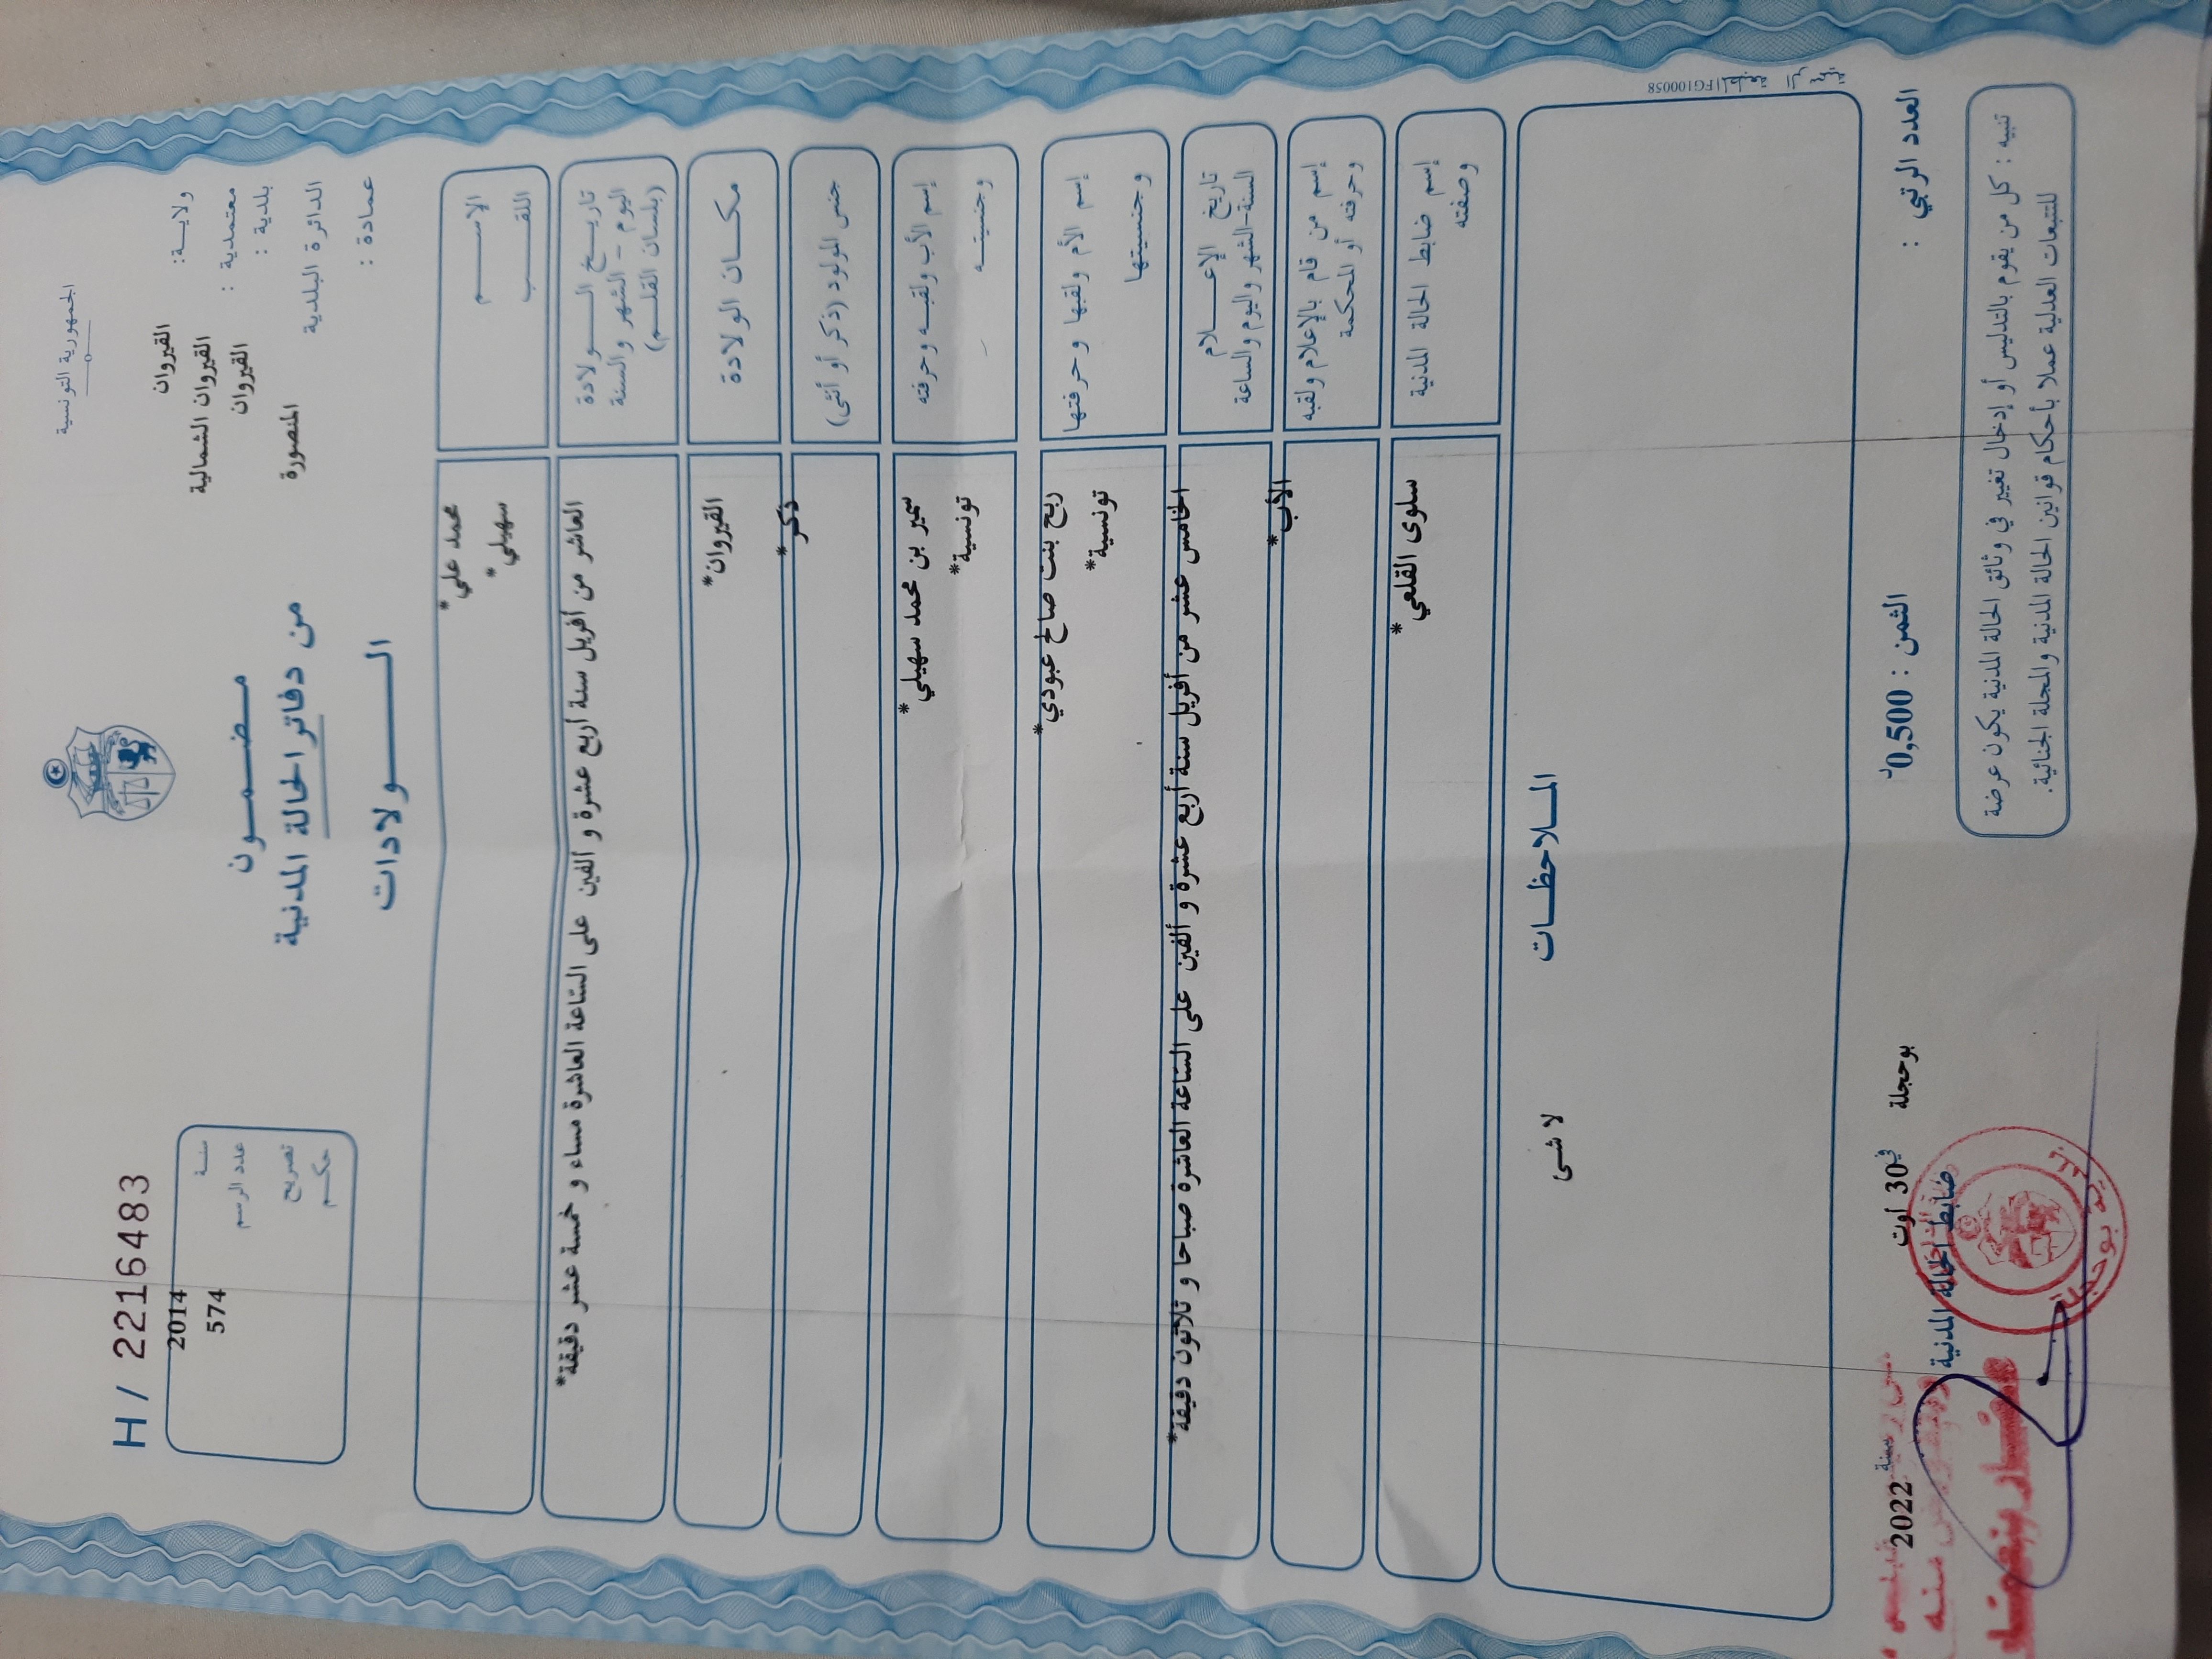 الجمهورية التونسية
ولايـــة: القيروان
معتمدية : القيروان الشمالية
بلدية : القيروان
الدائرة البلدية المنصورة
عمادة :
مـضـمــون
من دفاتر الحالة المدنية
الــــولادات
H/ 2216483
سنـة 2014
عدد الرسم 574
تصريح
حكـم
الإســـم محمد علي*
اللقـــب سهيلي*
تاريـــخ الـــولادة
اليوم - الشهر والسنة
(بلسان القلـم)
العاشر من أفريل سنة أربع عشرة و ألفين على الساعة العاشرة مساء و خمسة عشر دقيقة*
مكـــان الولادة القيروان*
جنس المولود (ذكر أو أنثى) ذكر*
إسم الأب ولقبـه وحرفته سمير بن محمد سهيلي*
وجنسيتـــه تونسية*
إسم الأم ولقبها وحرفتها ربح بنت صالح عبودي*
وجنسيتها تونسية*
تاريخ الإعـــلام
السنة-الشهر واليوم والساعة
الخامس عشر من أفريل سنة أربع عشرة و ألفين على الساعة العاشرة صباحا و ثلاثون دقيقة*
إسم من قام بالإعلام ولقبه الأب*
وحرفته أو المحكمة
إسم ضابط الحالة المدنية سلوى القلعي*
وصفته
المـــلاحظـــات
لا شىء
المطبعة الرسمية FG100058
العدد الرتبي :
الثمن : 0,500د
بوحجلة في 30 أوت سنة 2022
ضابط الحالة المدنية
تنبيه : كل من يقوم بالتدليس أو إدخال تغيير في وثائق الحالة المدنية يكون عرضة
للتتبعات العدلية عملا بأحكام قوانين الحالة المدنية والمجلة الجنائية.
بلدية بوحجلة